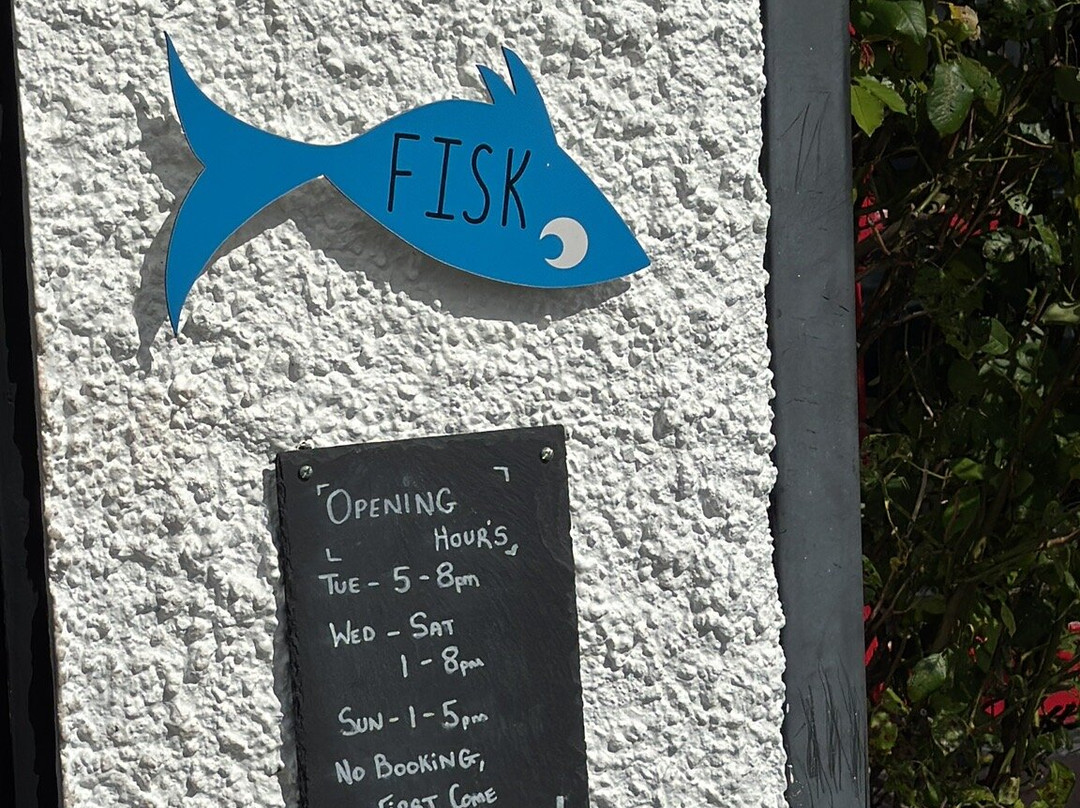 FISK
OPENING
HOUR'S
TUE - 5 - 8pm
WED - SAT
1 - 8pm
SUN - 1 - 5pm
NO BOOKING,
FIRST COME